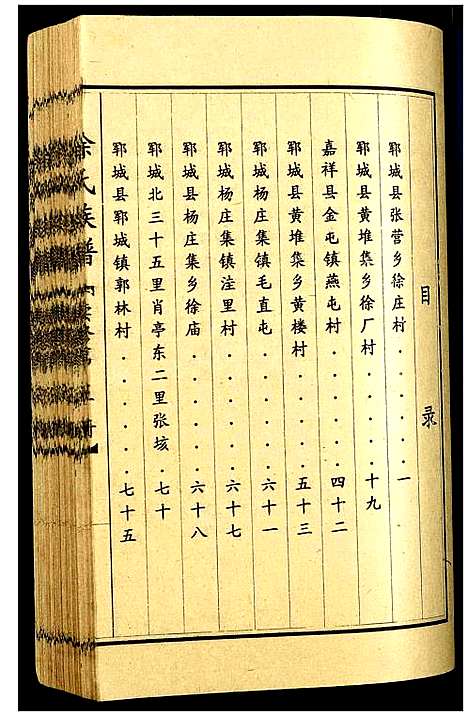 目录
郓城县张营乡徐庄村........一
郓城县黄堆集乡徐厂村.....十九
嘉祥县金屯镇燕屯村.....四十二
郓城县黄堆集乡黄楼村....五十三
郓城杨庄集镇毛直屯.....六十一
郓城杨庄集镇洼里村.....六十七
郓城县杨庄集乡徐庙.....六十八
郓城北三十五里肖亭东二里张垓.七十
郓城县郓城镇郭林村.....七十五
徐氏族谱